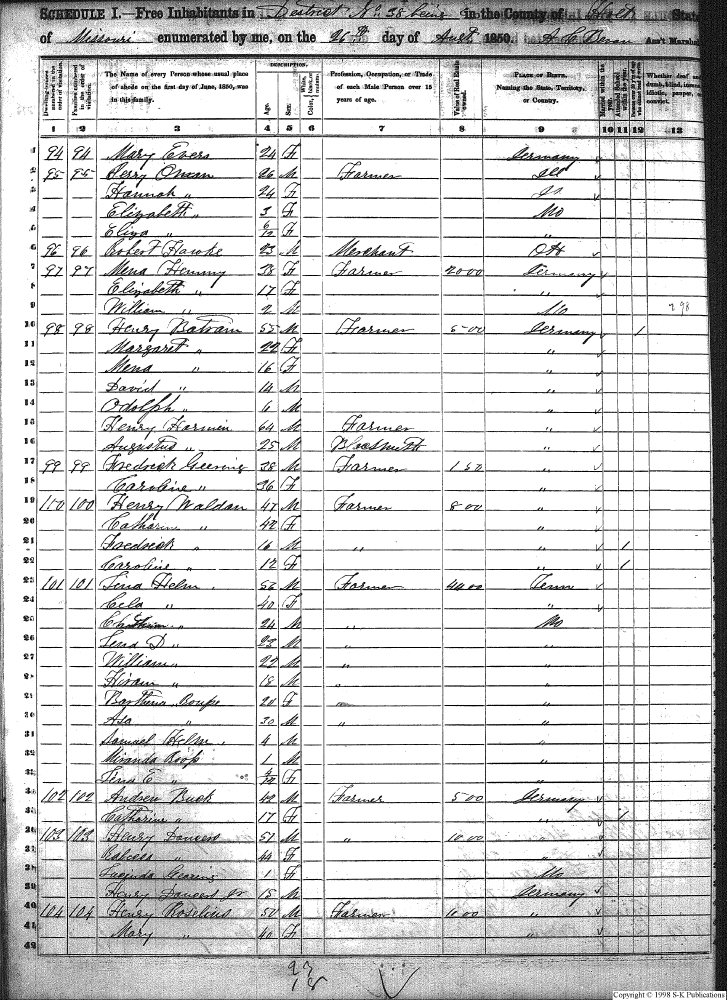 SCHEDULE I.—Free Inhabitants in District No 38 being in the County of Holt State
of Missouri enumerated by me, on the 26th day of Augt 1850. Ass't Marshal
DESCRIPTION.
Dwelling-houses numbered in the order of visitation. Families numbered in the order of visitation. The Name of every Person whose usual place of abode on the first day of June, 1850, was in this family. Age. Sex. White, black, or mulatto. Color, Profession, Occupation, or Trade of each Male Person over 15 years of age. Value of Real Estate owned. PLACE OF BIRTH. Naming the State, Territory, or Country. Married within the year. Attended School within the year. Whether deaf and dumb, blind, insane, idiotic, pauper, or convict.
1 2 3 4 5 6 7 8 9 10 11 12 13
1 94 94 Mary Evers 24 F Germany
2 95 95 Perry Oman 26 M Farmer Ill
3 Hannah " 24 F
4 Elizabeth " 3 F Mo
5 Eliza " F "
6 96 96 Robert Hawke 23 M Merchant OH
7 97 97 Mena Hemmy 38 F Farmer 2000 Germany
8 Elizabeth " 17 F "
9 William " 2 M Mo 298
10 98 98 Henry Batram 55 M Farmer 500 Germany 1
11 Margaret " 22 F "
12 Mena " 16 F "
13 David " 14 M "
14 Odolph " 6 M "
15 Henry Harmien 64 M Farmer "
16 Augustus " 25 M Blacksmith "
17 99 99 Fredrick Geering 38 M Farmer "
18 Caroline " 36 F "
19 100 100 Henry Waldan 47 M Farmer 800 "
20 Catharine " 42 F "
21 Fredrick " 16 M " " 1
22 Caroline " 12 F " 1
23 101 101 Helm 52 M Farmer 4400 Tenn
24 Cela " 40 F "
25 " 24 M " Mo
26 D " 23 M " "
27 William " 22 M " "
28 Hiram " 18 M " "
29 Barthena Roupe 20 F "
30 Asa " 30 M " "
31 Samuel Helm 4 M "
32 Miranda Roop 1 M "
33 E " F "
34 102 102 Andrew Buck 42 M Farmer 500 Germany
35 Catharine " 17 F " 1
36 103 103 Henry Dancers 51 M " 1000 "
37 " 44 F "
38 Lucinda Geering 1 F Mo
39 Henry Jr 15 M Germany
40 104 104 Henry Roselius 50 M Farmer "
41 Mary " 40 F "
42
Copyright © 1998 S-K Publications